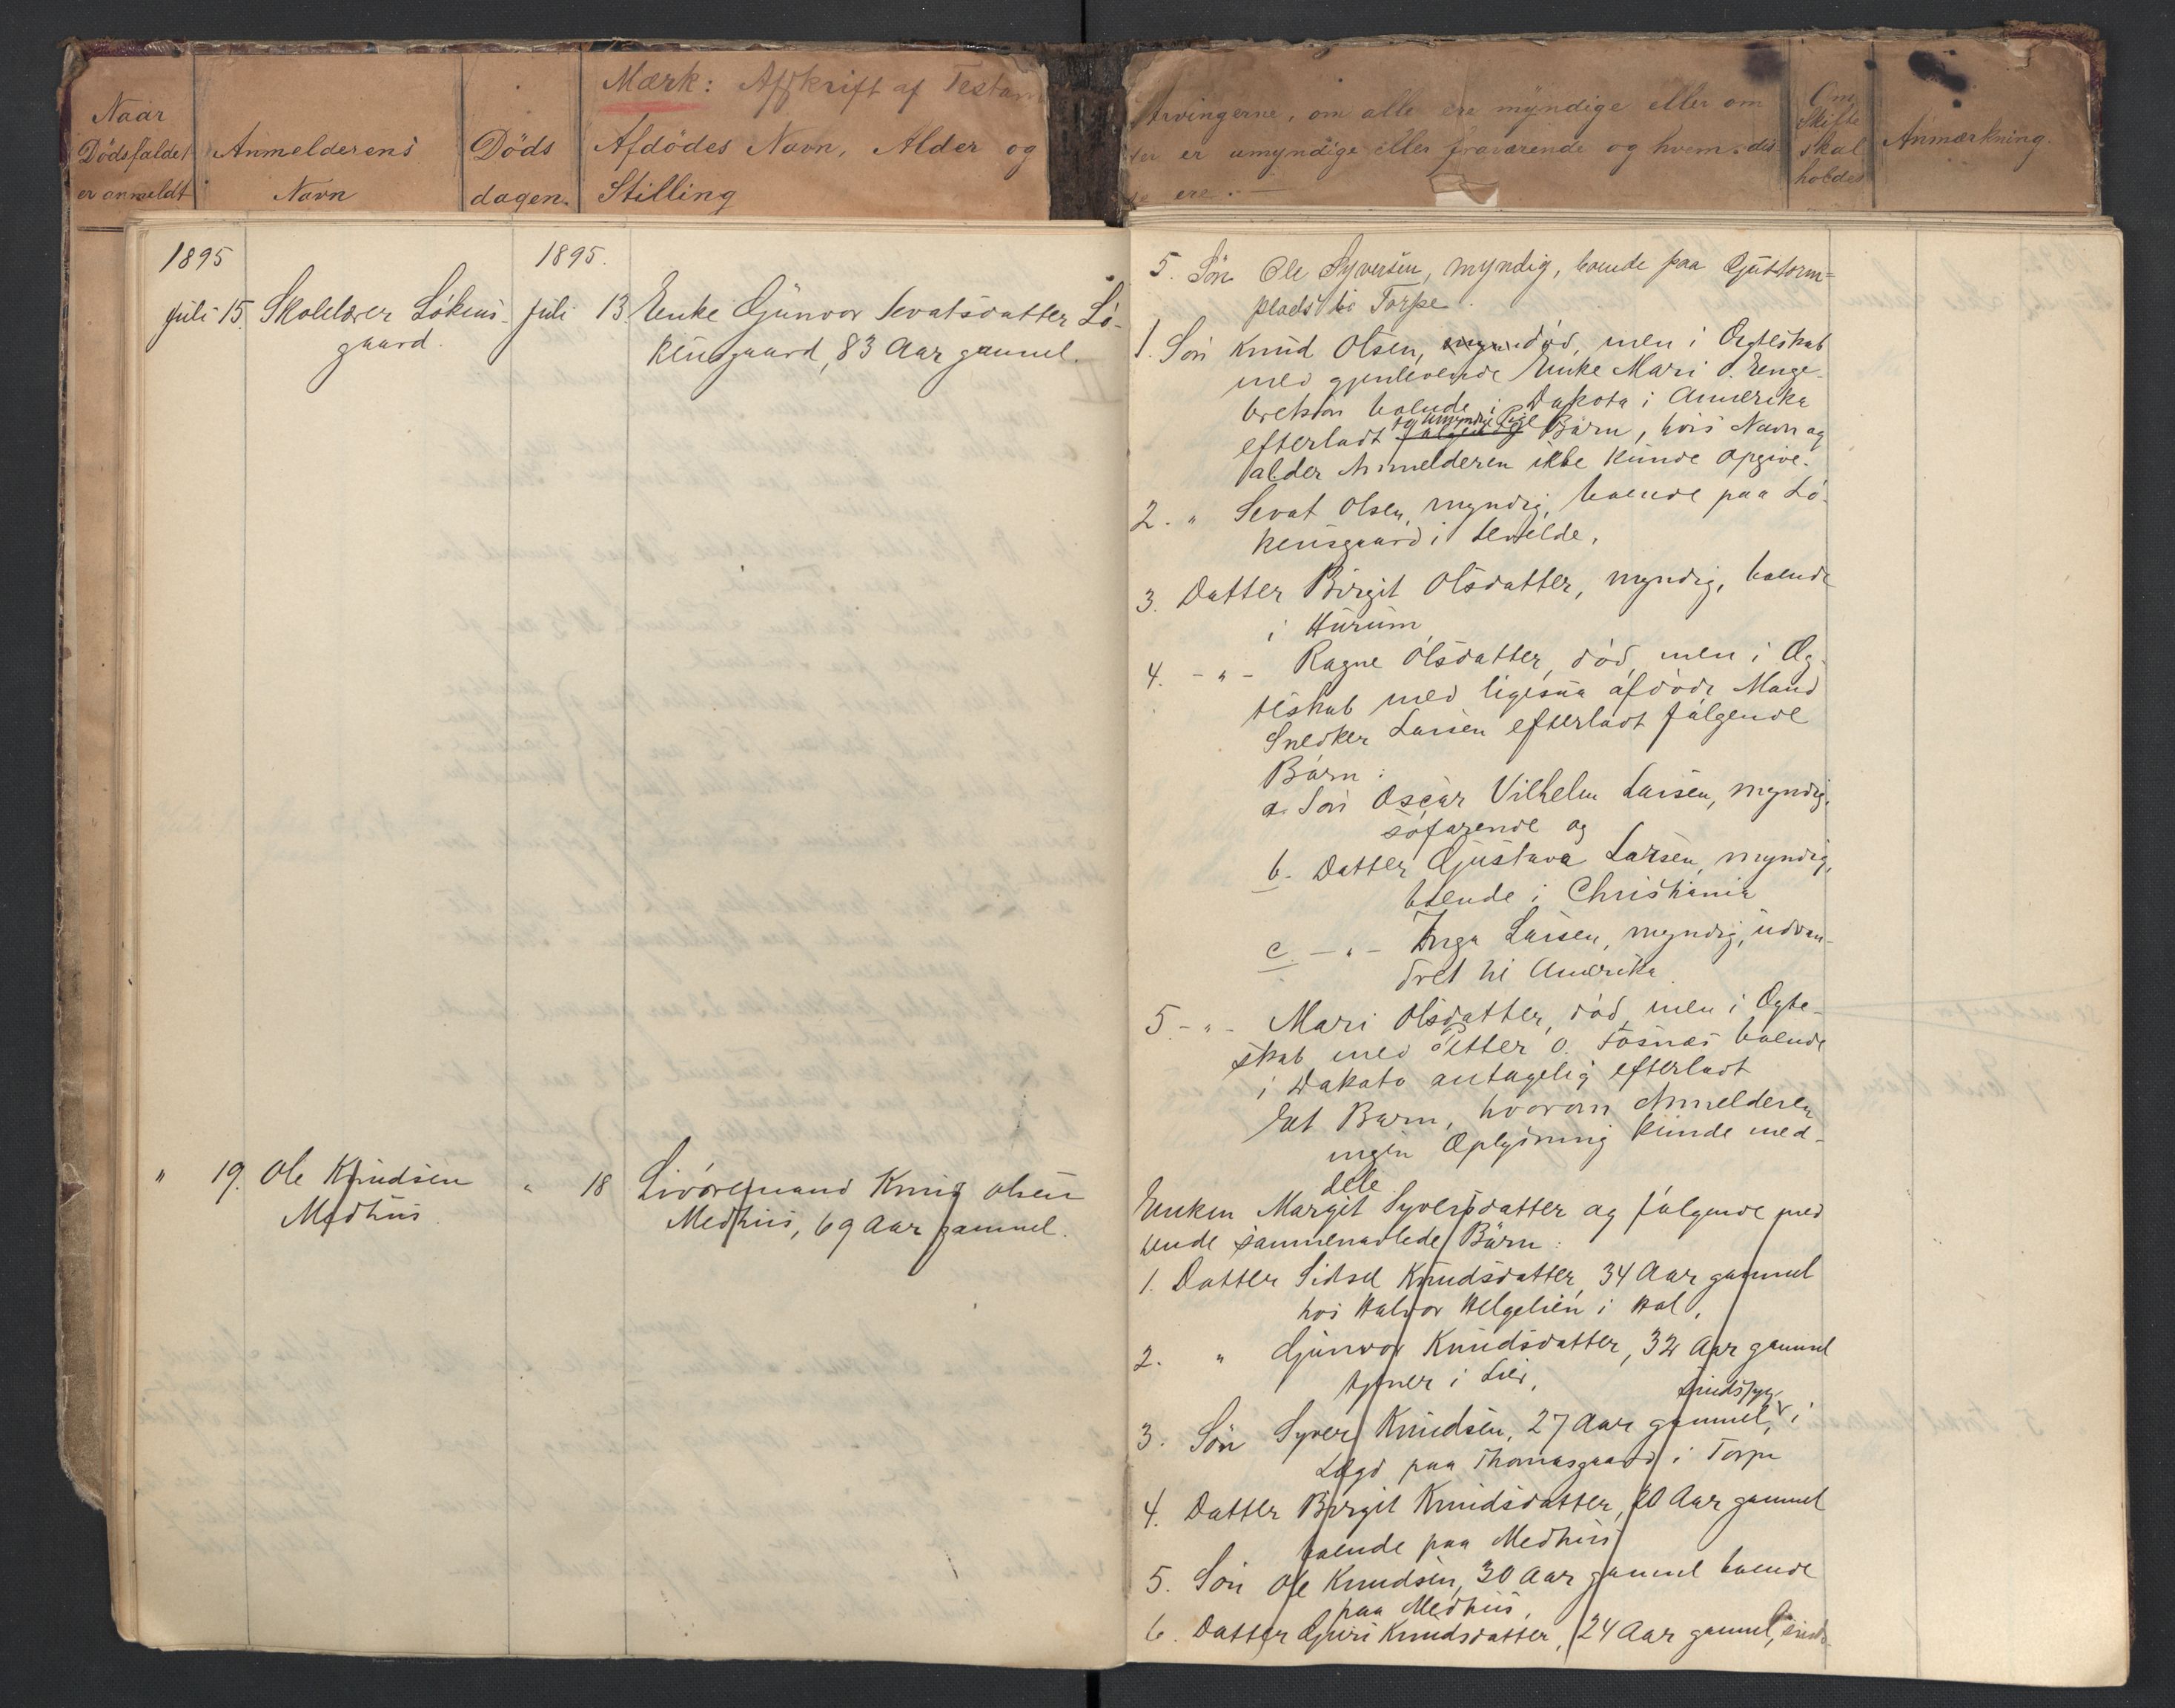 Mærk: Afskrift af Testam
Naar
Dödsfaldet
er anmeldt
Anmelderens
Navn
Döds
dagen.
Afdödes Navn, Alder og
Stilling
Arvingerne, om alle ere myndige eller om
er umyndige eller fraværende og hvem dis-
se ere.
Om
Skifte
skal
holdes
Anmærkning.
1895
1895.
Juli 15. Skolelærer Lökens-
gaard.
Juli 13. Enke Gunvor Sevatsdatter Lö-
kensgaard, 83 Aar gammel.
" 19. Ole Knudsen
Medhus
" 18 Livöremand Knud Olsen
Medhus, 69 Aar gammel.
5. Sön Ole Syversen, myndig, boende paa Guttorm=
plads i Torpe.
1. Sön Knud Olsen, död, men i Ægteskab
med gjenlevende Enke Mari O. Enge-
bretson boende i Dakota i Amerika
to umyndige Pige
efterladt følgende Börn, hvis Navn og
alder Anmelderen ikke kunde opgive.
2. " Sevat Olsen, myndig, boende paa Lö-
kensgaard i
3. Datter Birgit Olsdatter, myndig, boende
i Hurum
4. - " - Ragne Olsdatter, död, men i Æg-
teskab med ligesaa afdöde Mand
Snedker Larsen efterladt fölgende
Börn:
a. Sön Oscar Vilhelm Larsen, myndig,
söfarende og
b. Datter Gustava Larsen, myndig,
boende i Christiania
c. - " - Inga Larsen, myndig, udvan-
dret til Amerika
5. - " - Mari Olsdatter, död, men i Ægte-
skab med Petter O. Fosnæs boende
i Dakota antagelig efterladt
Et Barn, hvorom Anmelderen
ingen Oplysning kunde med-
dele
Enken Margit Syversdatter og fölgende med
hende sammenavlede Börn:
1. Datter Sidsel Knudsdatter, 34 Aar gammel
hos Halvor Helgelien i Hol,
2. " Gunvor Knudsdatter, 32 Aar gammel
tjener i Lier,
sindssyg
3. Sön Syver Knudsen, 27 Aar gammel, i
Lægd paa Thomasgaard i Torpe
4. Datter Birgit Knudsdatter, 20 Aar gammel
boende paa Medhus
5. Sön Ole Knudsen, 30 Aar gammel boende
paa Medhus,
6. Datter Guri Knudsdatter, 24 Aar gammel, sinds-